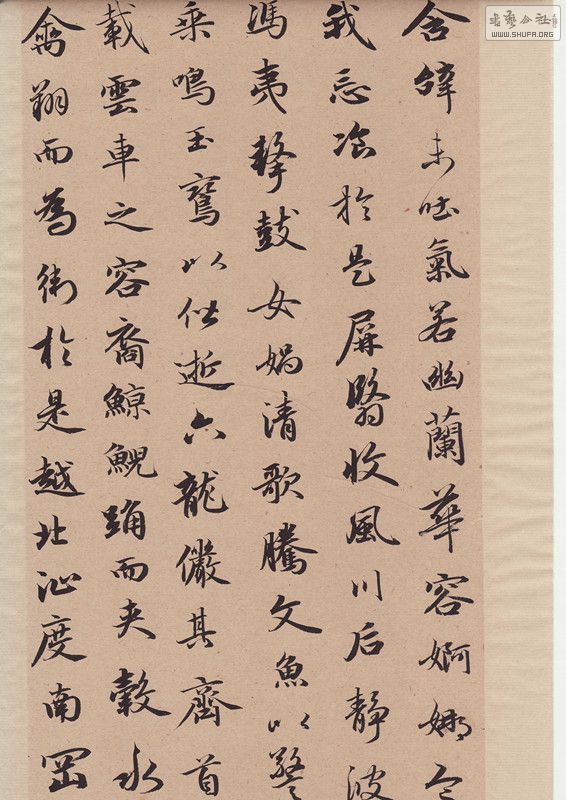 含辝未吐氣若幽蘭華容婀娜令
我忘飡於是屏翳收風川后靜波
馮夷擊鼓女媧清歌騰文魚以警
乘鳴玉鸞以偕逝六龍儼其齊首
載雲車之容裔鯨鯢踊而夾轂水
禽翔而為衛於是越北沚度南岡
书艺公社
WWW.SHUFA.ORG